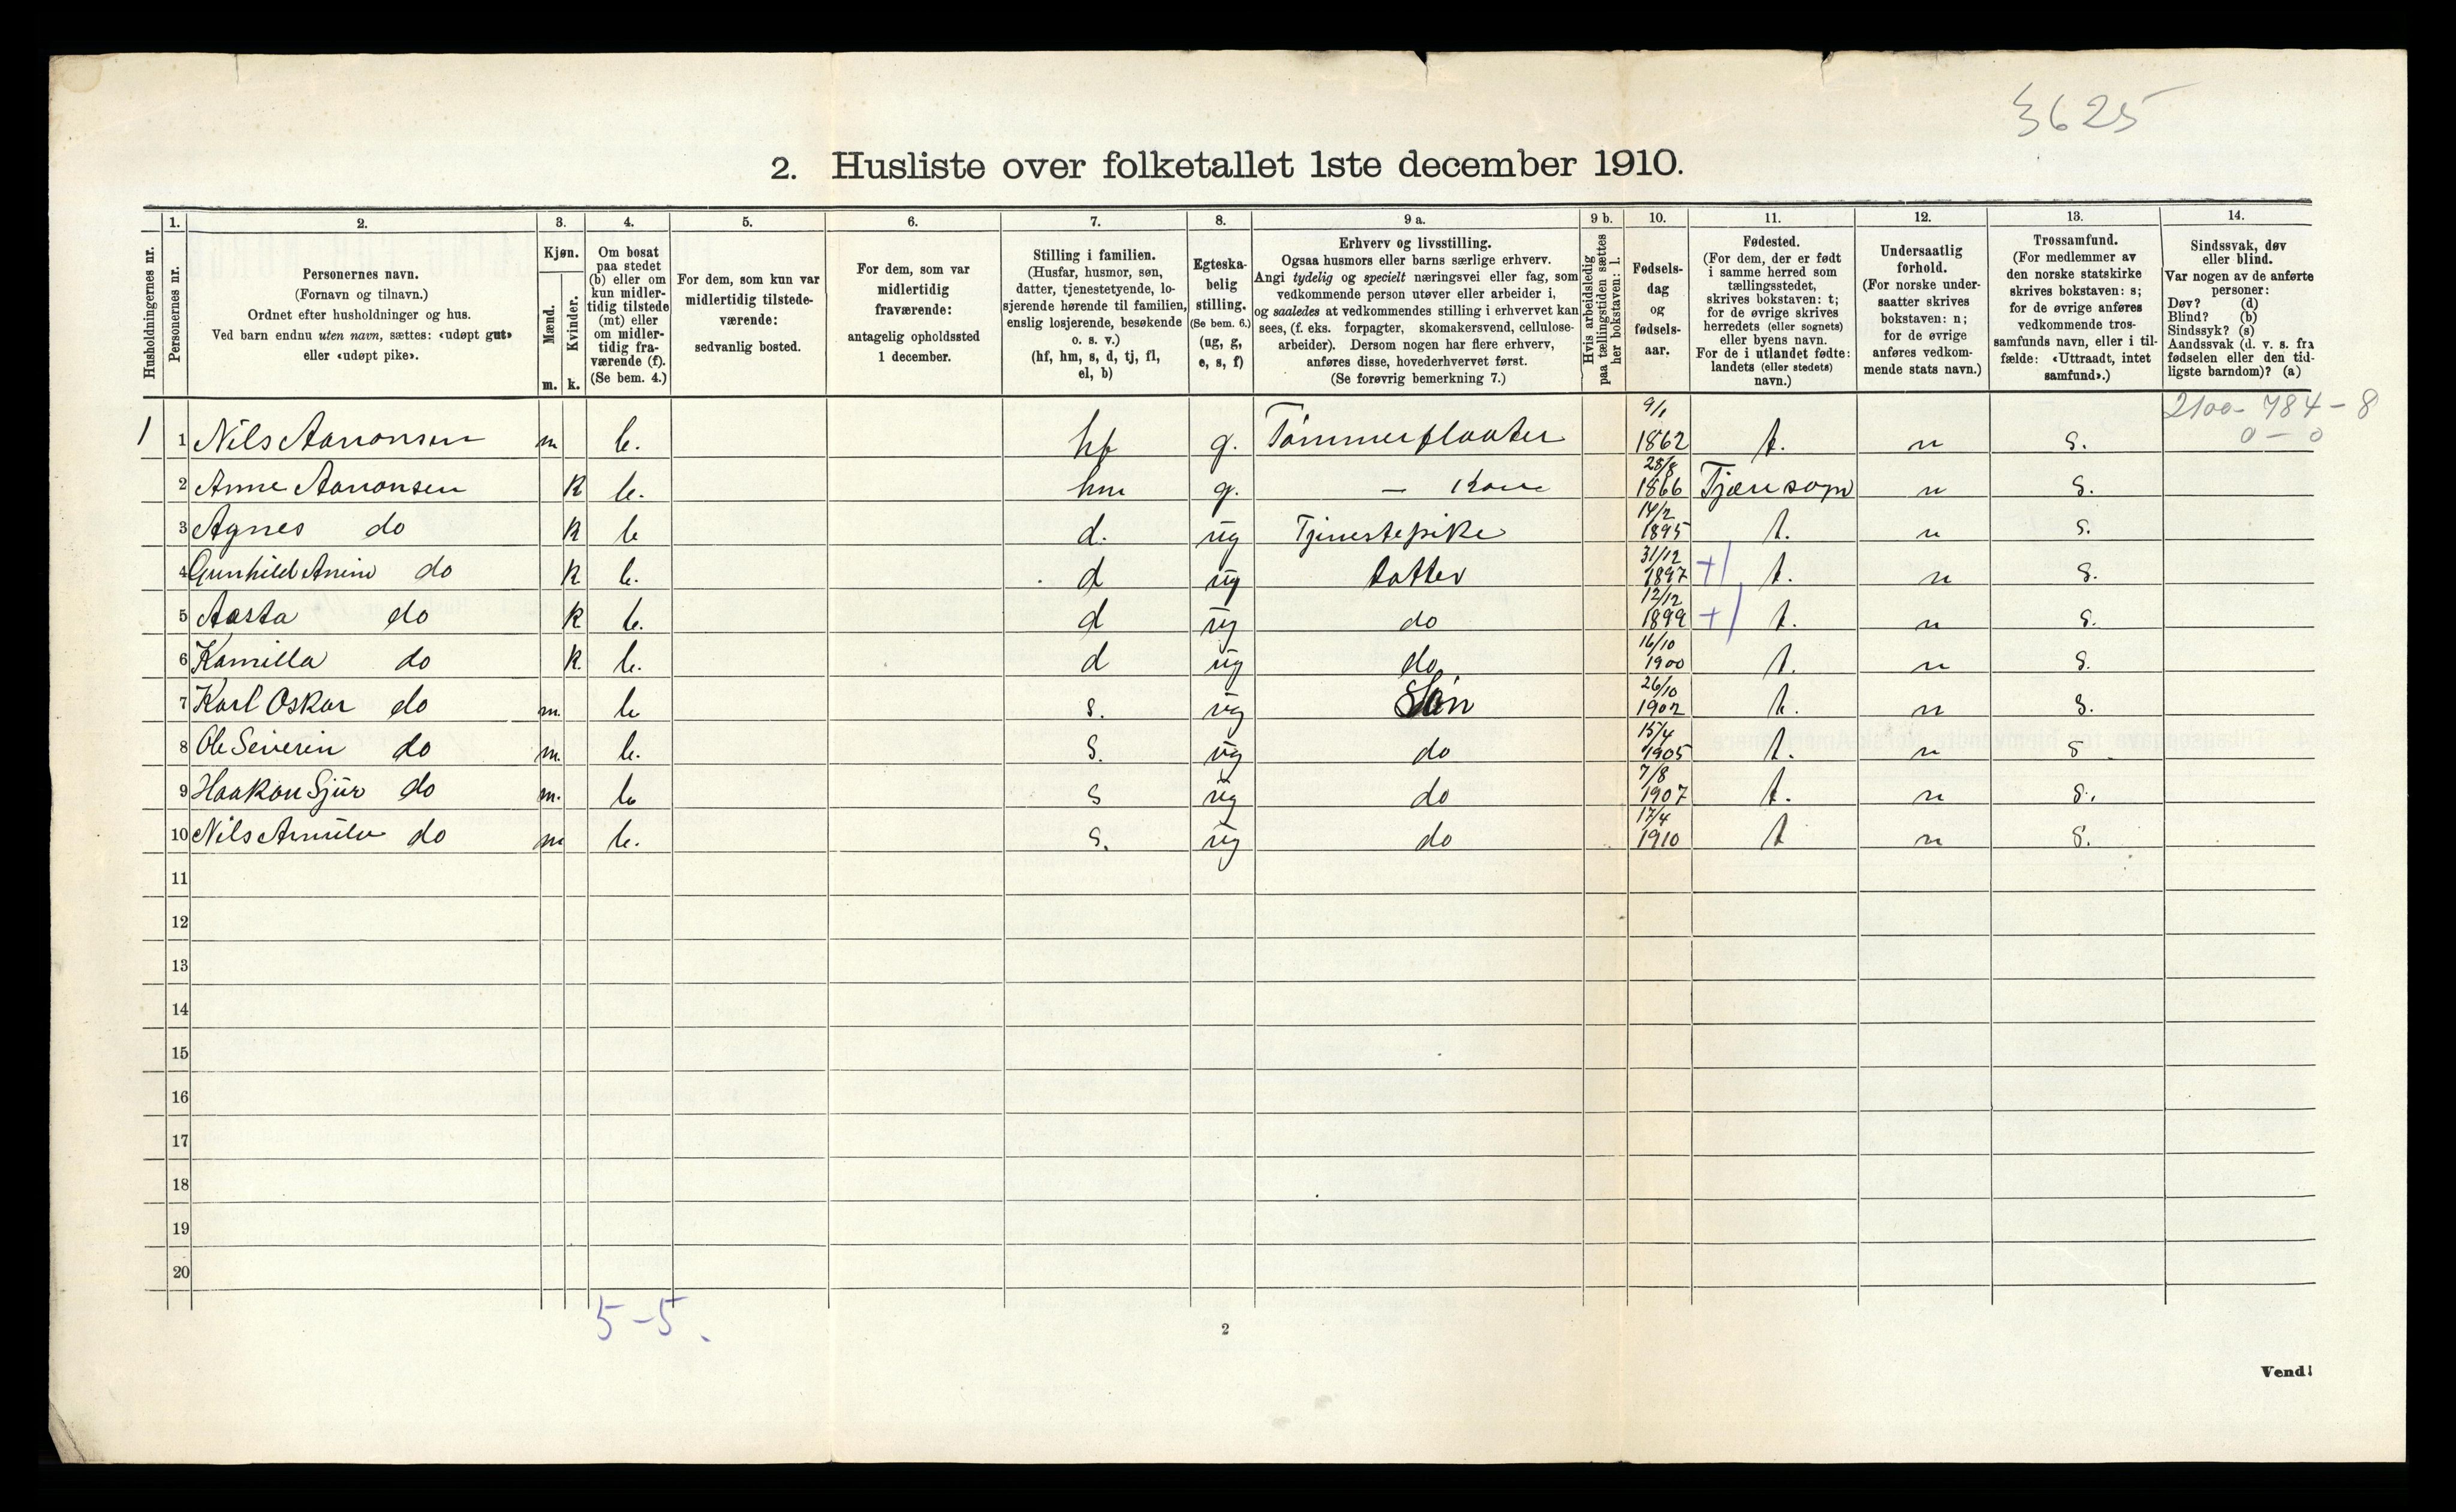 3625
2. Husliste over folketallet 1ste december 1910.
Husholdningernes nr.
1.
Personernes nr.
2.
Personernes navn.
(Fornavn og tilnavn.)
Ordnet efter husholdninger og hus.
Ved barn endnu uten navn, sættes: «udøpt gut»
eller «udøpt pike».
3.
Kjøn.
Mænd.
Kvinder.
m. k.
4.
Om bosat
paa stedet
(b) eller om
kun midler-
tidig tilstede
(mt) eller
om midler-
tidig fra-
værende (f).
(Se bem. 4.)
5.
For dem, som kun var
midlertidig tilstede-
værende:
sedvanlig bosted.
6.
For dem, som var
midlertidig
fraværende:
antagelig opholdssted
1 december.
7.
Stilling i familien.
(Husfar, husmor, søn,
datter, tjenestetyende, lo-
sjerende hørende til familien,
enslig losjerende, besøkende
o. s. v.)
(hf, hm, s, d, tj, fl,
el, b)
8.
Egteska-
belig
stilling.
(Se bem. 6.)
(ug, g,
e, s, f)
9 a.
Erhverv og livsstilling.
Ogsaa husmors eller barns særlige erhverv.
Angi tydelig og specielt næringsvei eller fag, som
vedkommende person utøver eller arbeider i,
og saaledes at vedkommendes stilling i erhvervet kan
sees, (f. eks. forpagter, skomakersvend, cellulose-
arbeider). Dersom nogen har flere erhverv,
anføres disse, hovederhvervet først.
(Se forøvrig bemerkning 7.)
9 b.
Hvis arbeidsledig
paa tællingstiden sættes
her bokstaven: l.
10.
Fødsels-
dag
og
fødsels-
aar.
11.
Fødested.
(For dem, der er født
i samme herred som
tællingsstedet,
skrives bokstaven: t;
for de øvrige skrives
herredets (eller sognets)
eller byens navn.
For de i utlandet fødte:
landets (eller stedets)
navn.)
12.
Undersaatlig
forhold.
(For norske under-
saatter skrives
bokstaven: n;
for de øvrige
anføres vedkom-
mende stats navn.)
13.
Trossamfund.
(For medlemmer av
den norske statskirke
skrives bokstaven: s;
for de øvrige anføres
vedkommende tros-
samfunds navn, eller i til-
fælde: «Uttraadt, intet
samfund».)
14.
Sindssvak, døv
eller blind.
Var nogen av de anførte
personer:
Døv? (d)
Blind? (b)
Sindssyk? (s)
Aandssvak (d. v. s. fra
fødselen eller den tid-
ligste barndom)? (a)
2100 - 784 - 8
0 - 0
1 1 Nils Aanonsen m b. hf g. Tømmerfløater 9/1 1862 t. n s.
2 Anne Aanonsen k b. hm g. — Kone 28/8 1866 n s.
3 Agnes do k b d. ug Tjenestepike 14/2 1895 t. n s.
4 Gunhild do k b. d ug datter 31/12 1897 +| t. n s.
5 Aasta do k b. d ug do 12/12 1899 +| t. n s.
6 Kamilla do k. b. d ug do 16/10 1900 t. n s.
7 Karl Oskar do m. b s. ug Søn 26/10 1902 t. n s.
8 Ole Severin do m. b. s. ug do 15/4 1905 t. n s
9 Haakon Sjur do m. b s ug do 7/8 1907 t. n s.
10 Nils do m b. s. ug do 17/4 1910 t n s.
11
12
13
14
15
16
17
18
19
20
5 - 5.
2
Vend!